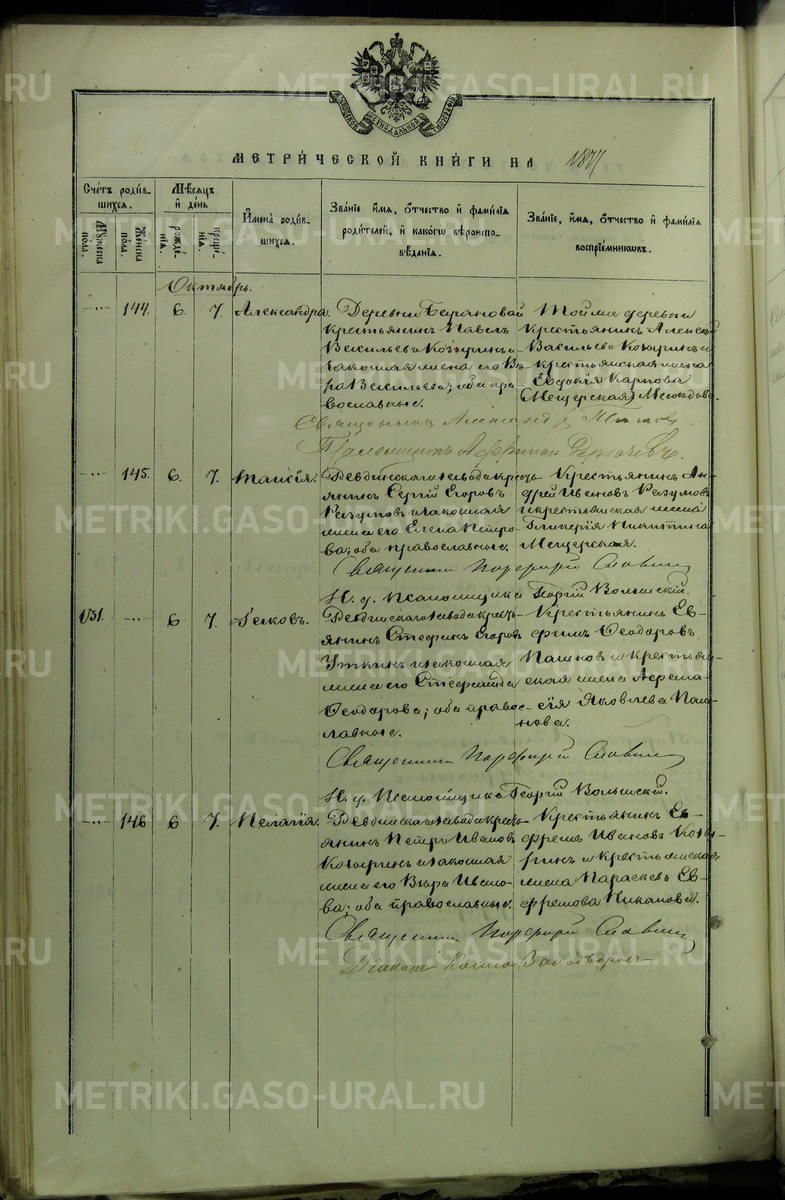 МЕТРИЧЕСКОЙ КНИГИ НА 1877
Счетъ родив-
шихся.
Мѣсяцъ
и день
Мужеска
пола.
Женска
пола.
рожде-
нія.
креще-
нія.
Имена родив-
шихся.
Званіе имя, отчество и фамилія
родителей, и какого вѣроиспо-
вѣданія.
Званіе, имя, отчество и фамилія
воспріемниковъ.
Октябрь.
144. 6. 7. Александра.
Деревни Барановой
крестьянинъ Павелъ
Васильевъ Козыринъ и
законная жена его Вѣ-
ра Васильева; оба пра-
вославные.
Той же деревни
крестьянинъ Алексѣй
Васильевъ Козыринъ и
крестьянская жена
Евдокія Карпова
Священникъ Александръ
145. 6. 7. Таисія.
Ревдинскаго завода кресть-
янинъ Сергій Егоровъ
Разумовъ и законная
жена его Елена Петро-
ва; оба православные.
Крестьянинъ Ан-
дрей Ивановъ Разумовъ
и крестьянская жена
Гликерія Никитина
Мещерская.
Священникъ Порфирій Славнинъ
И. д. Псаломщика Георгій Волынскій.
131. 6 7. Іаковъ.
Ревдинскаго завода кресть-
янинъ Стефанъ Егоровъ
Уткинъ и законная
жена его Стефанида
Феодорова; оба право-
славные.
Крестьянинъ Ев-
фимъ Феодоровъ
Пашковъ и крестьян-
ская жена Афана-
сія Яковлева Паш-
нова.
Священникъ Порфирій Славнинъ
И. д. Псаломщика Георгій Волынскій.
146 6 7. Пелагія.
Ревдинскаго завода кресть-
янинъ Петръ Ивановъ
Козыринъ и законная
жена его Вѣра Ивано-
ва; оба православные.
Крестьянинъ Ев-
фремъ Ивановъ Козы-
ринъ и крестьянская
жена Параскева Ев-
фремова Никанова.
Священникъ Порфирій Славнинъ
Діаконъ Косма
METRIKI.GASO-URAL.RU